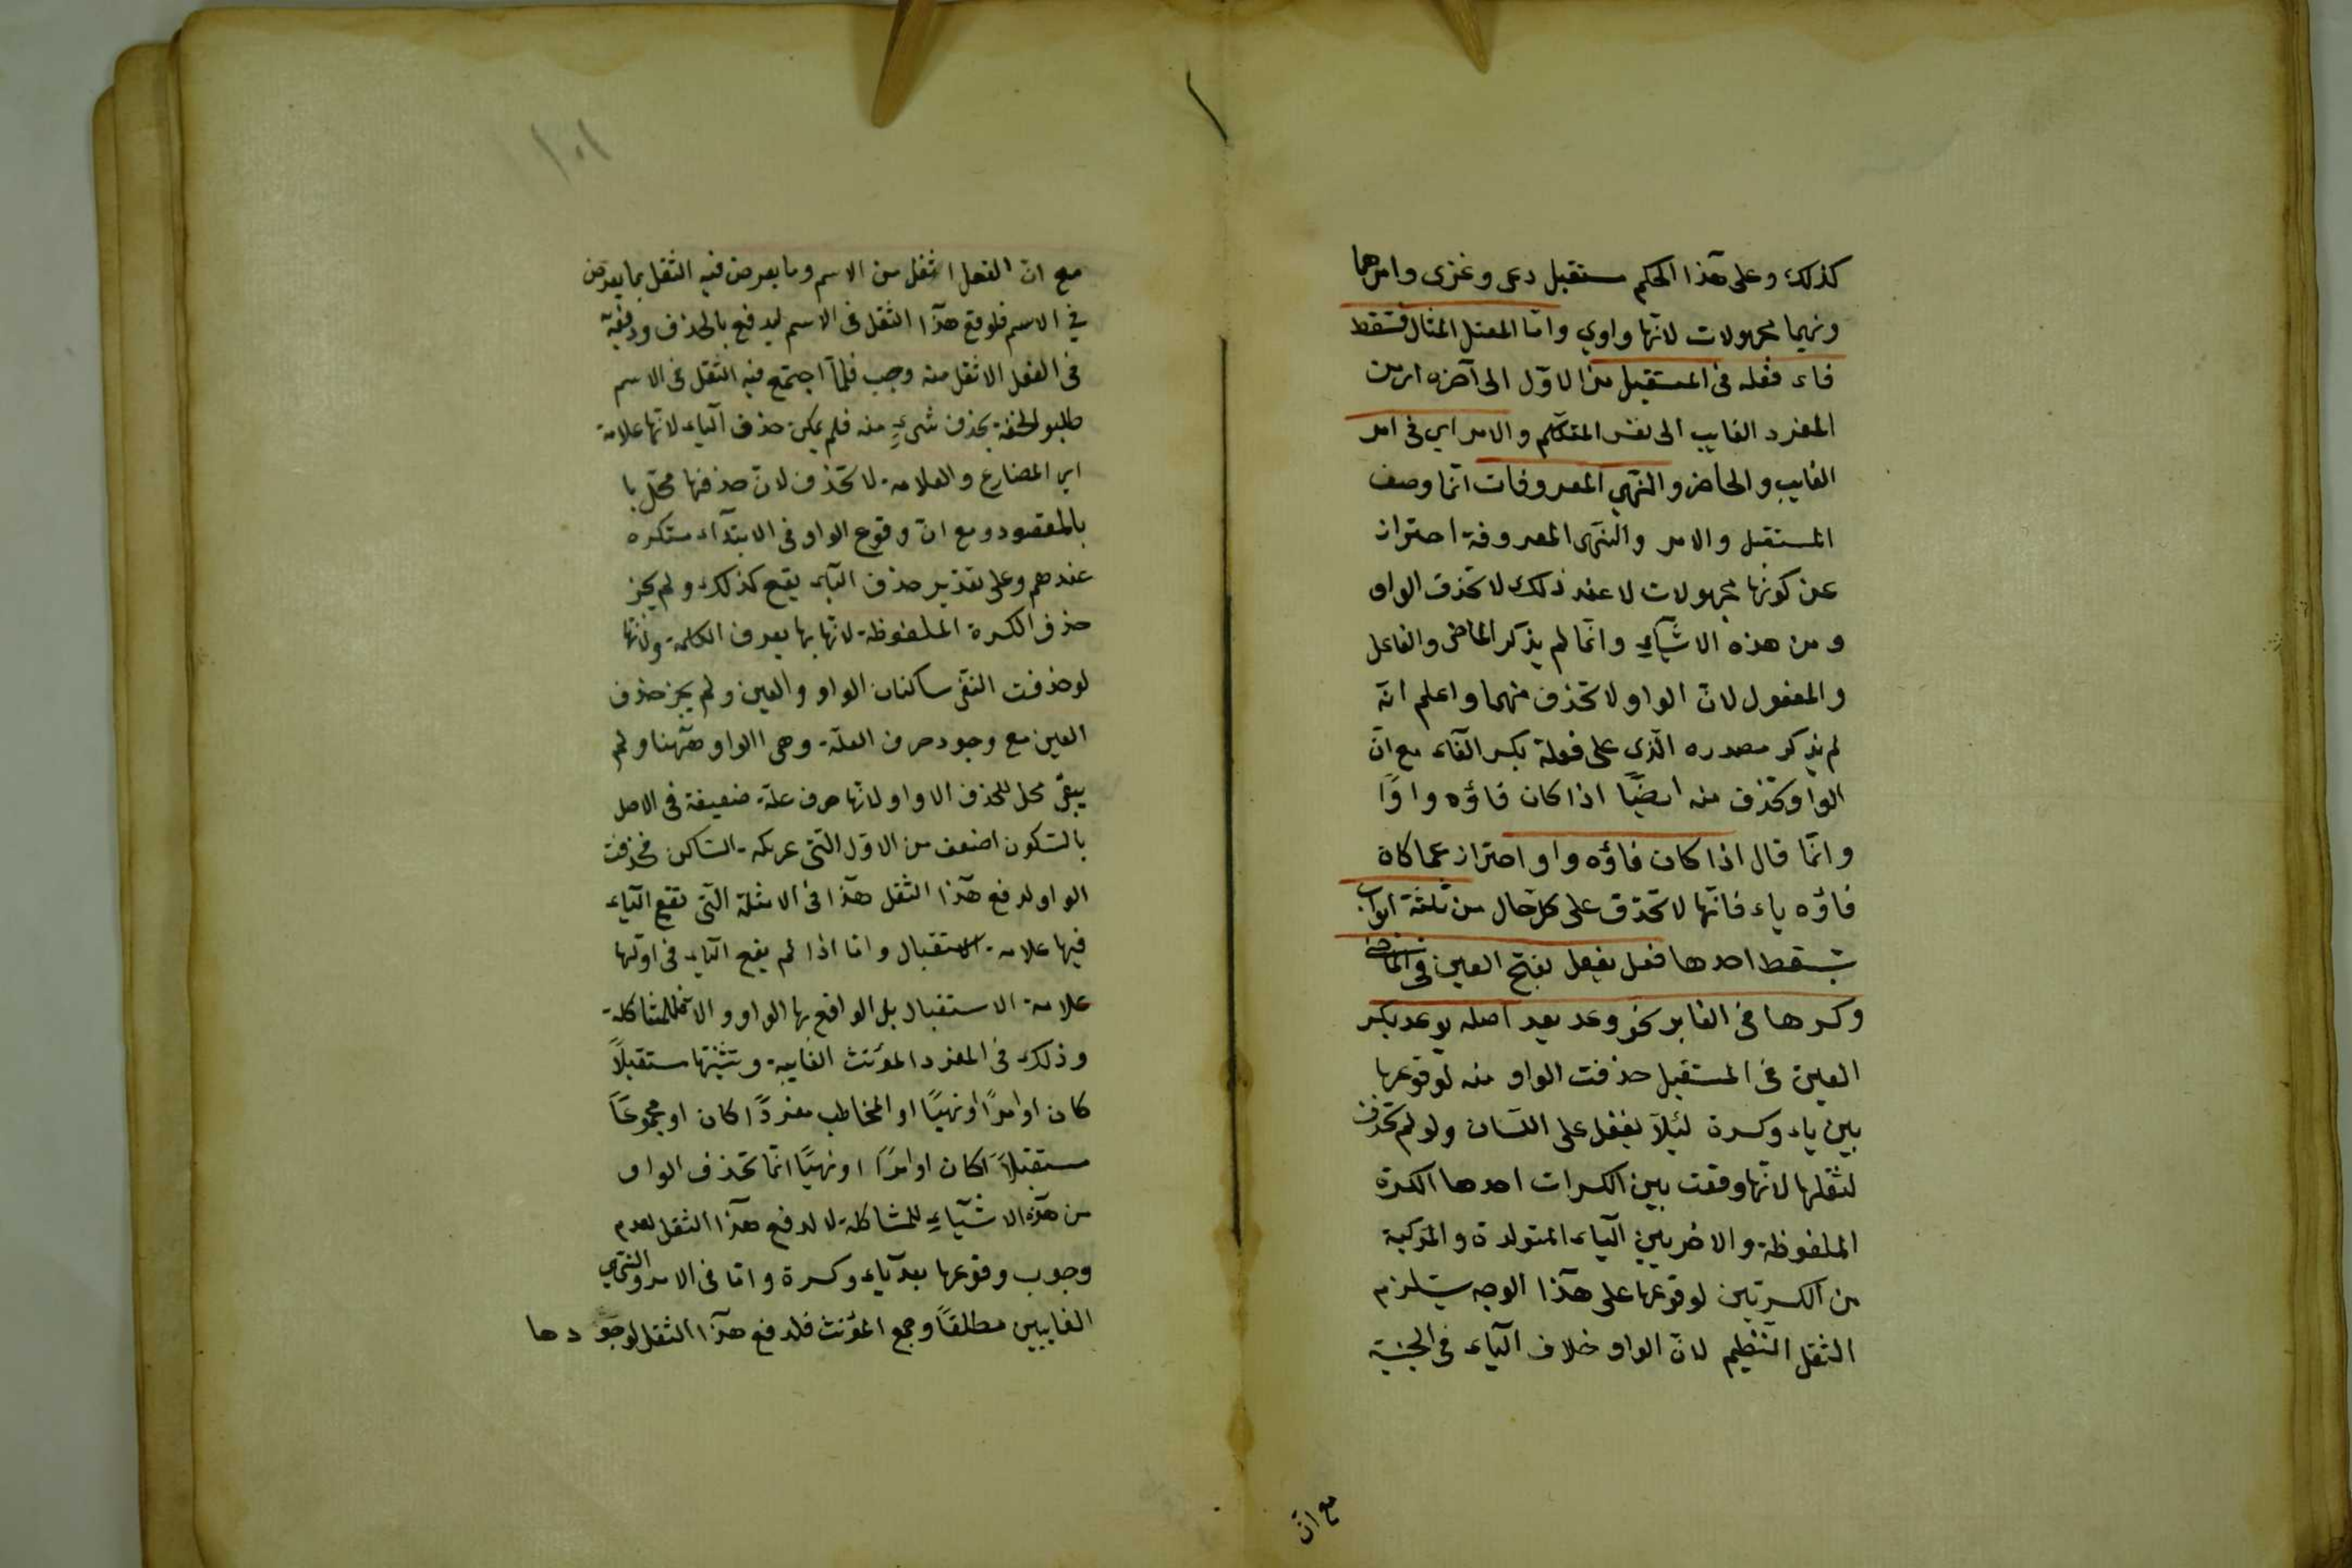 كذلك وعلى هذا الحكم مستقبل دعى وغزى وامرهما
ونهيما مجهولات لانها واوي وامّا المعتل المثال فتسقط
فاء فعله فى المستقبل من الاوّل الى آخره اى من
المفرد الغايب الى نفس المتكلّم والامر اي فى امر
الغايب والحاضر والنّهي المعروفات انّما وصف
المستقبل والامر والنّهى المعروفة احتراز
عن كونها مجهولات لا عند ذلك لا تحذف الواو
ومن هذه الاشيآءِ وانّما لم يذكر الماضى والفاعل
والمفعول لانّ الواو لا تحذف منهما واعلم انّه
لم يذكر مصدره الّذي على فعلة بكسر الفآء مع انّ
الواو تحذف منه ايضًا اذا كان فاؤه واوًا
وانّما قال اذا كان فاؤه واو احتراز عما كان
فاؤه ياء فانّها لا تحذف على كل حال من ثلثة ابواب
تسقط احدها فعل يفعل بفتح العين فى الماضى
وكسرها فى الغابر نحو وعد يعد اصله يوعد بكسر
العين فى المستقبل حذفت الواو منه لوقوعها
بين ياء وكسرة لئلّا يثقل على اللسان ولو لم تحذف
لثقلها لانّها وقعت بين الكسرات احدها الكسرة
الملفوظة والاخريين الياء المتولدة والمركبة
من الكسرتين لوقوعها على هذا الوجه يستلزم
الثقل العظيم لانّ الواو خلاف الياء فى الجنسية
مع انّ
١٠١
مع انّ الفعل اثقل من الاسم وما يعرض فيه الثقل بما يعرض
في الاسم فلو قع هذا الثقل فى الاسم ليدفع بالحذف ودفعه
فى الفعل الاثقل منه وجب فلمّا اجتمع فيه الثقل فى الاسم
طلبو الخفة بحذف شيءٍ منه فلم يمكن حذف الياء لانّها علامة
اي المضارع والعلامة لا تحذف لانّ حذفها مخل با
بالمقصود ومع انّ وقوع الواو فى الابتدآء مستكره
عندهم وعلى تقدير حذف الياء يقع كذلك ولم يجز
حذف الكسرة الملفوظة لانّها بها يعرف الكلمة ولانّها
لو حذفت التقى ساكنان الواو والعين ولم يجز حذف
العين مع وجود حرف العلّة وهى االواو ههنا ولم
يبقى محل للحذف الا واو لانّها حرف علّة ضعيفة فى الاصل
بالسّكون اضعف من الاوّل الّتى عريكة السّاكن فحذفت
الواو لدفع هذا الثقل هذا فى الامثلة الّتى تقع الياء
فيها علامة الاستقبال وامّا اذا لم يقع الياء فى اوّلها
علامة الاستقبال بل الواقع بها الواو و للمشاكلة
وذلك فى المفرد المؤنث الغايبة وتثنيتها مستقبلاً
كان او امرًا او نهيًا او المخاطب مفردًا كان او مجموعًا
مستقبلاً كان او امرًا او نهيًا انّما تحذف الواو
من هذه الاشيآءِ للمشاكلة لا لدفع هذا الثقل لعدم
وجوب وقوعها بعد ياء وكسرة وامّا فى الامر والنّهي
الغايبين مطلقًا وجمع المؤنث فلدفع هذا الثقل لوجودها